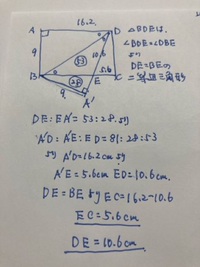 16.2
A
D
9
53
10.6
28
5.6
B
E
C
9
A'
△BDEは、
∠BDE=∠DBE
より
DE=BEの
二等辺三角形
DE:EA'=53:28より
A'D:A'E:ED=81:28:53
より A'D=16.2cmより
A'E=5.6cm ED=10.6cm
DE=BEより EC=16.2-10.6
EC=5.6cm
DE=10.6cm